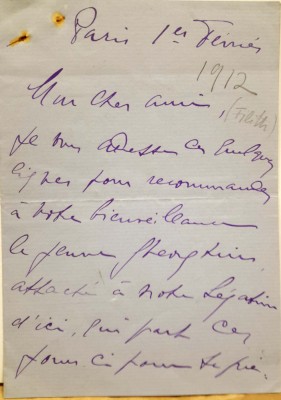 Paris 1er Février
1912
Mon cher ami,
je vous adresse ces quelques
lignes pour recommander
à votre bienveillance
le jeune
attaché à notre Légation
d'ici, qui part ces
jours ci pour